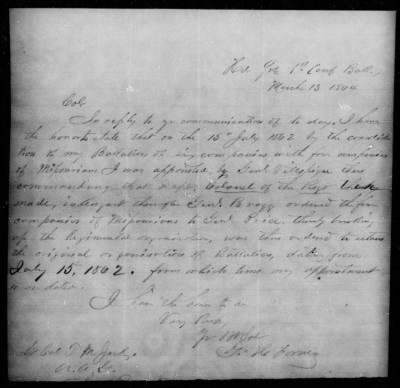 Hd. Qrs 1st Conf Batt.,
March 13 1864
Col
In reply to yr communication of to day, I have
the honor to state that on the 15th July 1862 by the consolida
tion of my Battalion of six companies with four companies
of Missourians I was appointed by Genl Villepigue then
commanding that Dept, Colonel of the Regt
made, subsequent Genl Bragg ordered the four
companies of Missourians to Genl Price, thereby breaking
up the Regimental organization, was then ordered to retain
the original organization of Battalion, dating from
July 15, 1862. from which time my appointment
is so dated.
I have the honor to
Very Resp
Yr Obt
Geo H Forney
Lt Col T. M. Jack,
A. A. G.